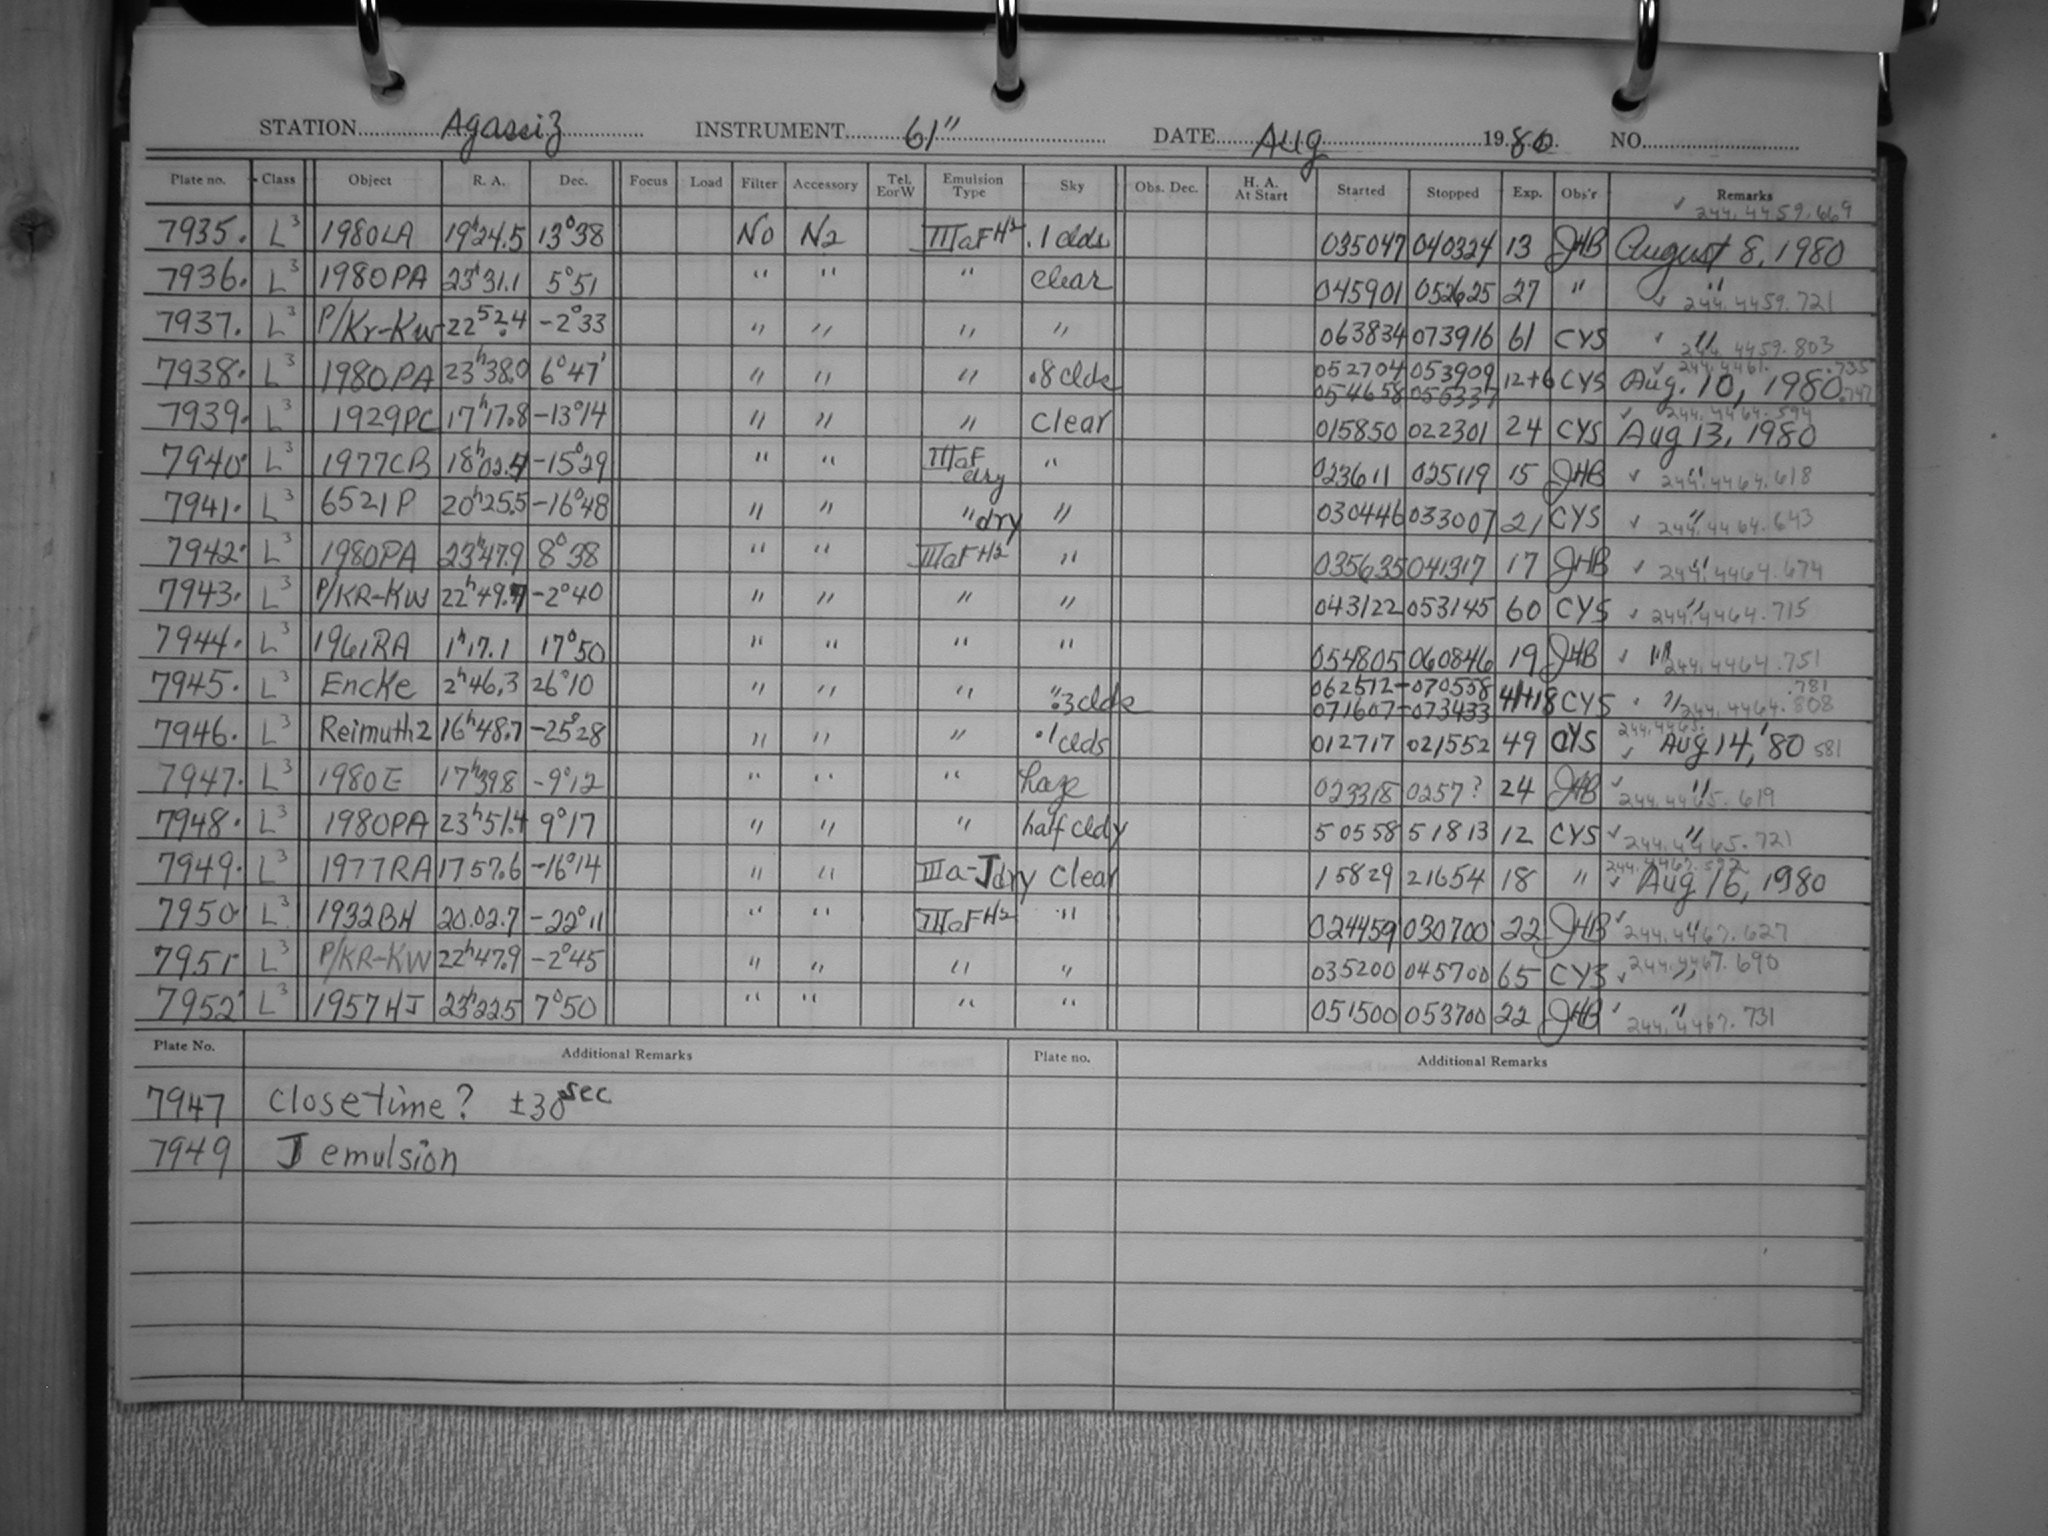 STATION Agassiz INSTRUMENT 61" DATE Aug 1980. NO.
Plate no. Class Object R. A. Dec. Focus Load Filter Accessory Tel. E or W Emulsion Type Sky Obs. Dec. H. A. At Start Started Stopped Exp. Obs'r Remarks
✓ 244.4459.669
7935. L³ 1980LA 19ʰ24.5 13°38 No N2 IIIaFH² .1 clds 035047 040324 13 JHB August 8, 1980
7936. L³ 1980PA 23ʰ31.1 5°51 " " " clear 045901 052625 27 " " ✓ 244.4459.721
7937. L³ P/Kr-Kw 22 52.4 -2°33 " " " " 063834 073916 61 CYS ✓ " 244.4459.803
7938. L³ 1980PA 23ʰ38.0 6°47' " " " .8 clds 052704 053909 12+6 CYS ✓ 244.4461. .735 Aug. 10, 1980 .747
054658 055337
7939. L³ 1929PC 17ʰ17.8 -13°14 " " " Clear 015850 022301 24 CYS ✓ 244.4464.594 Aug 13, 1980
7940 L³ 1977CB 18ʰ02.4 -15°29 " " IIIaF dry " 023611 025119 15 JHB ✓ " 244.4464.618
7941. L³ 6521P 20ʰ25.5 -16°48 " " " dry " 030446 033007 21 CYS ✓ " 244.4464.643
7942. L³ 1980PA 23ʰ47.9 8°38 " " IIIaFH² " 035635 041317 17 JHB ✓ " 244.4464.674
7943. L³ P/KR-KW 22ʰ49.7 -2°40 " " " " 043122 053145 60 CYS ✓ " 244.4464.715
7944. L³ 1961RA 1ʰ17.1 17°50 " " " " 054805 060846 19 JHB ✓ " 244.4464.751
7945. L³ Encke 2ʰ46.3 26°10 " " " " .3 clds 062512-070558 41+18 CYS ✓ " .781
071607-073433 244.4464.808
7946. L³ Reimuth2 16ʰ48.7 -25°28 " " " .1 clds 012717 021552 49 CYS 244.4465. ✓ Aug 14, '80 581
7947. L³ 1980E 17ʰ39.8 -9°12 " " " haze 023318 0257? 24 JHB ✓ " 244.4465.619
7948. L³ 1980PA 23ʰ51.4 9°17 " " " half cldy 50558 51813 12 CYS ✓ " 244.4465.721
7949. L³ 1977RA 17 57.6 -16°14 " " IIIa-J dry Clear 15829 21654 18 " 244.4467.592 ✓ Aug 16, 1980
7950 L³ 1932BH 20.02.7 -22°11 " " IIIaFH² " 024459 030700 22 JHB ✓ " 244.4467.627
7951 L³ P/KR-KW 22ʰ47.9 -2°45 " " " " 035200 045700 65 CYS ✓ " 244.4467.690
7952 L³ 1957HJ 23ʰ22.5 7°50 " " " " 051500 053700 22 JHB ✓ " 244.4467.731
Plate No. Additional Remarks Plate no. Additional Remarks
7947 close time? ±30 sec
7949 J emulsion